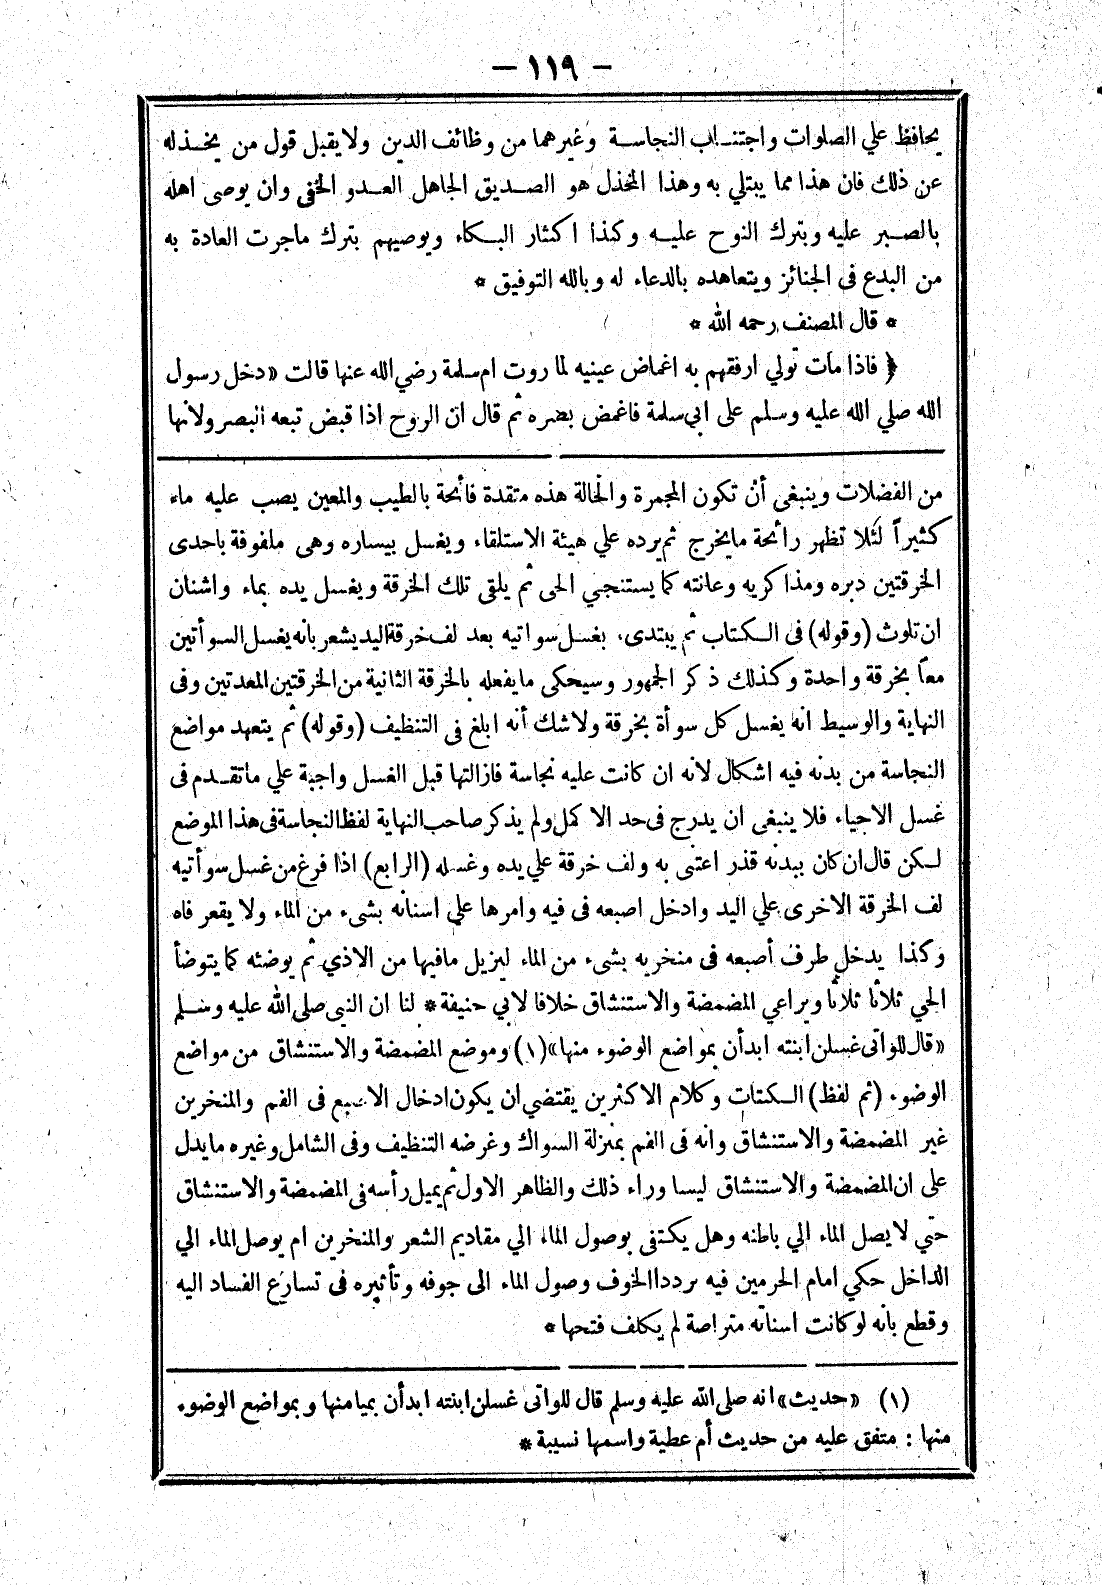 — ١١٩ —
يحافظ علي الصلوات واجتنـاب النجاسـة وغيرهما من وظائف الدين ولا يقبل قول من يخـذله
عن ذلك فان هذا مما يبتلي به وهذا المخذل هو الصـديق الجاهل العـدو الخفى وان يوصى اهله
بالصـبر عليه وبترك النوح عليـه وكذا اكثار البـكاء ويوصيهم بترك ماجرت العادة به
من البدع فى الجنائز ويتعاهده بالدعاء له وبالله التوفيق *
* قال المصنف رحمه الله *
﴿ فاذا مات تولي ارفقهم به اغماض عينيه لما روت ام سلمة رضي الله عنها قالت «دخل رسول
الله صلي الله عليه وسلم على ابي سلمة فاغمض بصره ثم قال ان الروح اذا قبض تبعه البصر ولانها
من الفضلات وينبغى أن تكون المجمرة والحالة هذه متقدة فأئحة بالطيب والمعين يصب عليه ماء
كثيراً لئلا تظهر رائحة مايخرج ثم يرده علي هيئة الاستلقاء ويغسل بيساره وهى ملفوفة باحدى
الخرقتين دبره ومذاكريه وعانته كما يستنجي الحى ثم يلقى تلك الخرقة ويغسل يده بماء واشنان
ان تلوث (وقوله) فى الـكتاب ثم يبتدىء بغسل سواتيه بعد لف خرقة اليد يشعر بانه يغسل السوأتين
معاً بخرقة واحدة وكذلك ذكر الجمهور وسيحكى مايفعله بالخرقة الثانية من الخرقتين المعدتين وفى
النهاية والوسيط انه يغسل كل سوأة بخرقة ولاشك أنه ابلغ فى التنظيف (وقوله) ثم يتعهد مواضع
النجاسة من بدنه فيه اشكال لانه ان كانت عليه نجاسة فازالتها قبل الغسل واجبة علي ماتقـدم فى
غسل الاحياء فلا ينبغى ان يدرج فى حد الاكمل ولم يذكر صاحب النهاية لفظ النجاسة فى هذا الموضع
لـكن قال ان كان ببدنه قذر اعتنى به ولف خرقة علي يده وغسله (الرابع) اذا فرغ من غسل سوأتيه
لف الخرقة الاخرى علي اليد وادخل اصبعه فى فيه وامرها علي اسنانه بشىء من الماء ولا يقعر فاه
وكذا يدخل طرف أصبعه فى منخريه بشىء من الماء ليزيل مافيها من الاذي ثم يوضئه كما يتوضأ
الحي ثلاثا ثلاثا ويراعي المضمضة والاستنشاق خلافا لابي حنيفة * لنا ان النبى صلى الله عليه وسـلم
«قال للواتى غسلن ابنته ابدأن بمواضع الوضوء منها» (١) وموضع المضمضة والاستنشاق من مواضع
الوضوء (ثم لفظ) الـكتاب وكلام الاكثرين يقتضي ان يكون ادخال الاصبع فى الفم والمنخرين
غير المضمضة والاستنشاق وانه فى الفم بمنزلة السواك وغرضه التنظيف وفى الشامل وغيره مايدل
على ان المضمضة والاستنشاق ليسا وراء ذلك والظاهر الاول ثم يميل رأسه فى المضمضة والاستنشاق
حتي لا يصل الماء الي باطنه وهل يكتفى بوصول الماء الي مقاديم الشعر والمنخرين ام يوصل الماء الي
الداخل حكي امام الحرمين فيه ترددا الخوف وصول الماء الى جوفه وتأثيره فى تسارع الفساد اليه
وقطع بانه لو كانت اسنانه متراصة لم يكلف فتحها *
(١) «حديث» انه صلى الله عليه وسلم قال للواتى غسلن ابنته ابدأن بميامنها وبمواضع الوضوء
منها : متفق عليه من حديث أم عطية واسمها نسيبة *